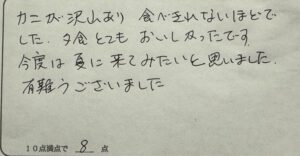 カニが沢山あり 食べきれないほどで
した. 夕食とてもおいしかったです
今度は夏に来てみたいと思いました.
有難うございました
10点満点で 8 点